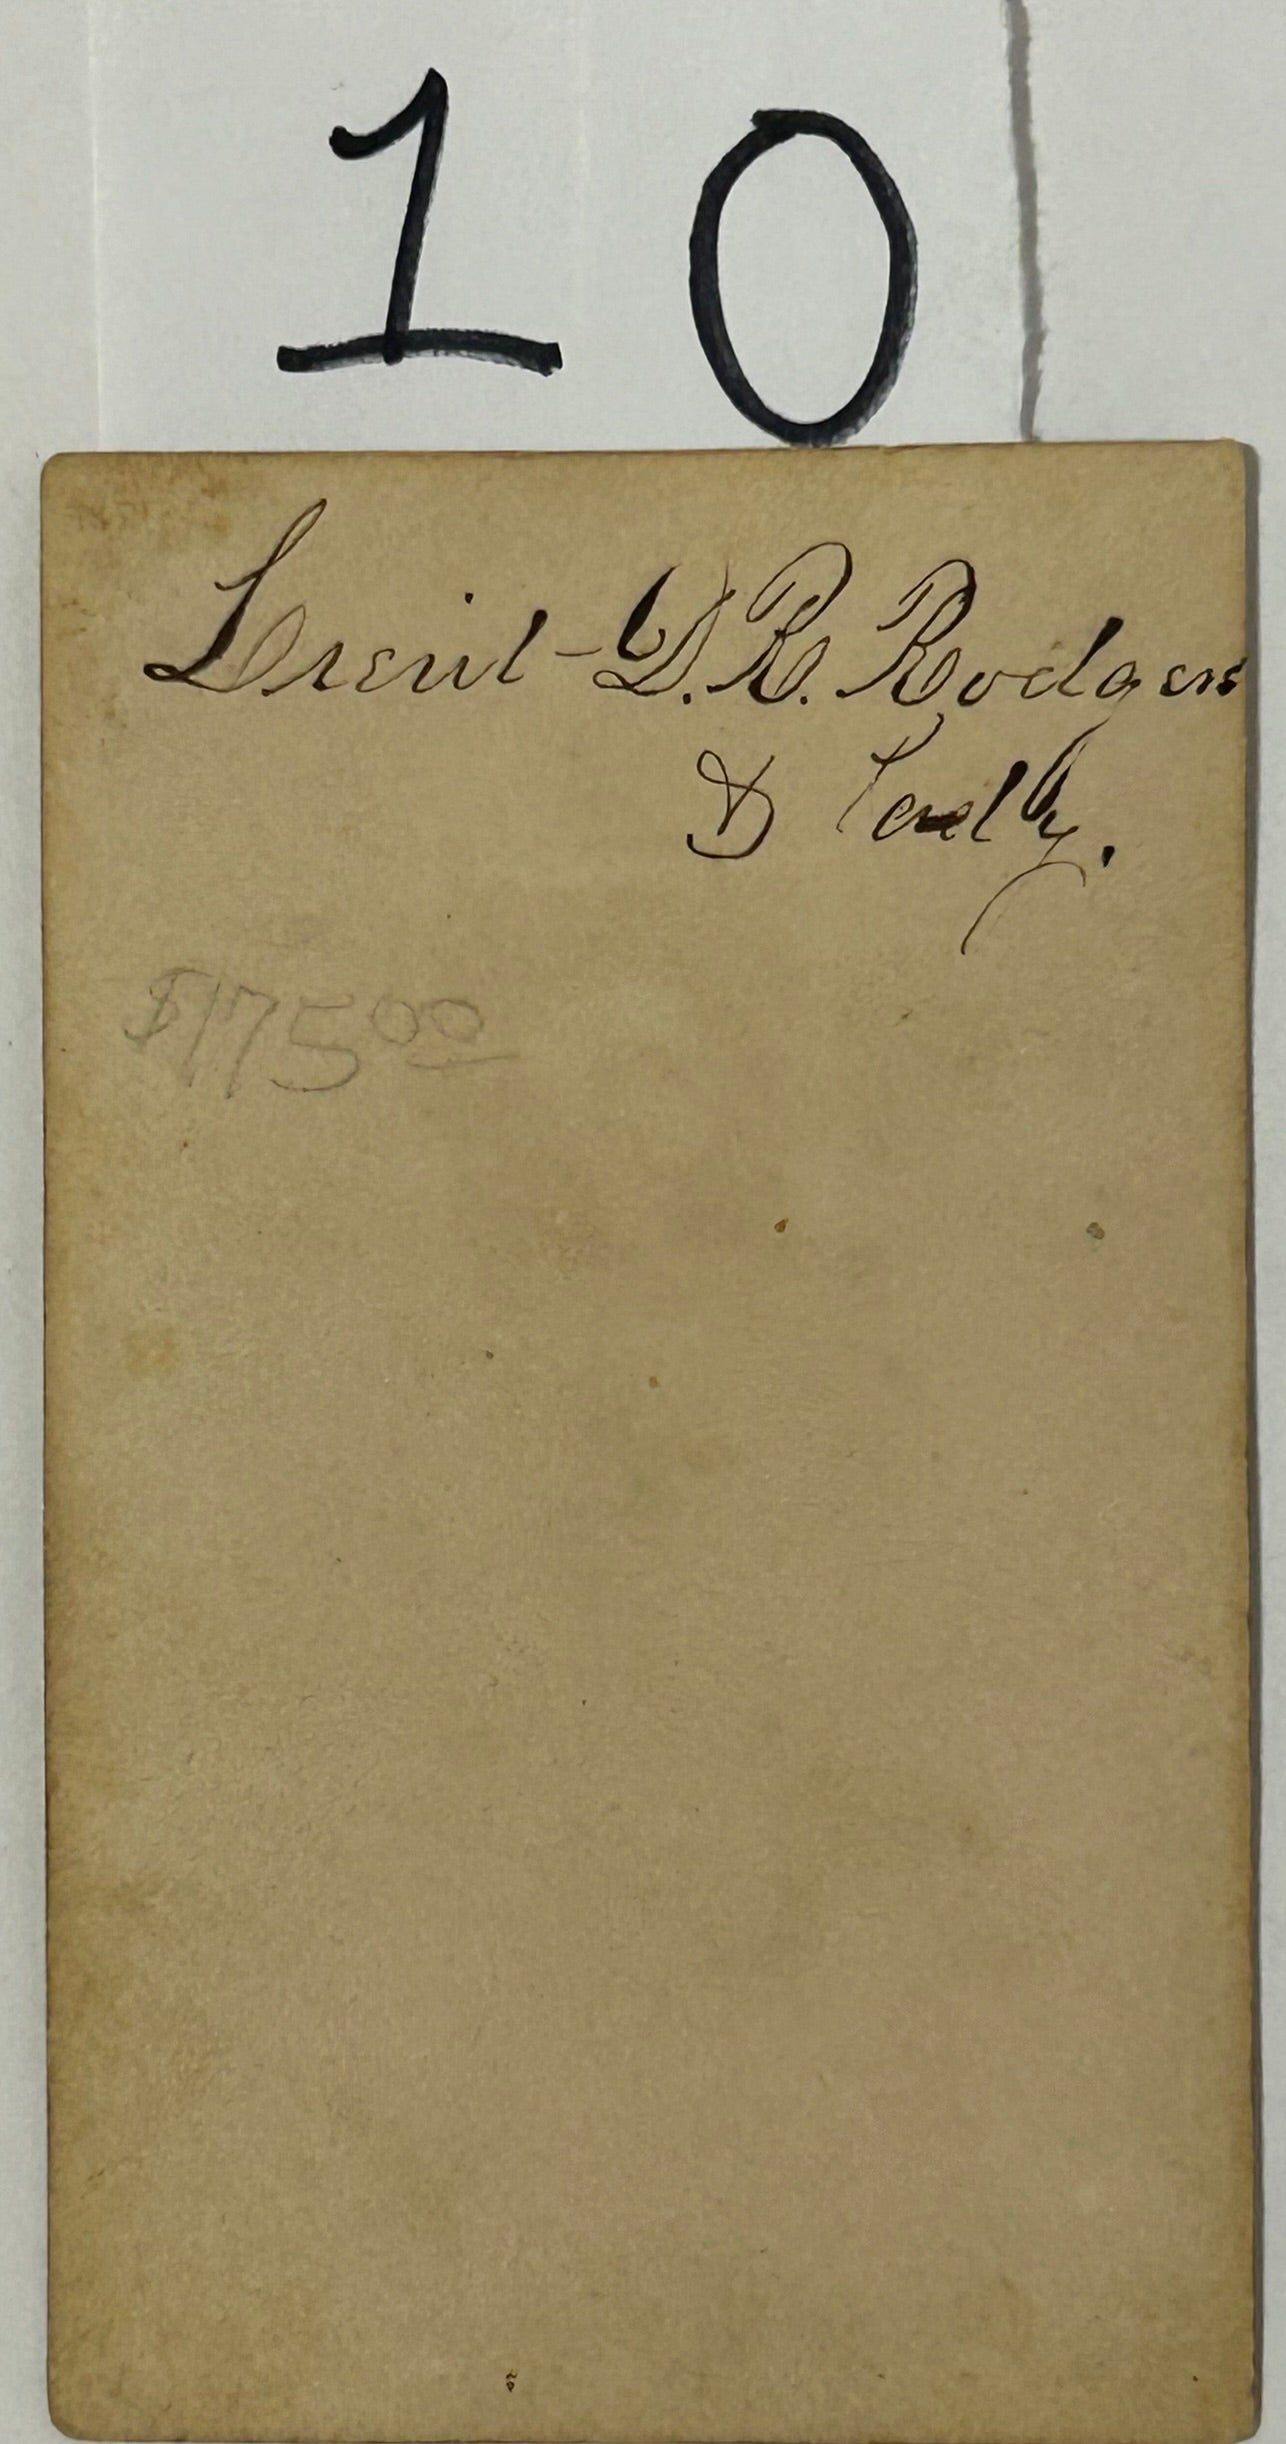 10
Lieut - D. R. Rodgers
& Lady.
$175 00